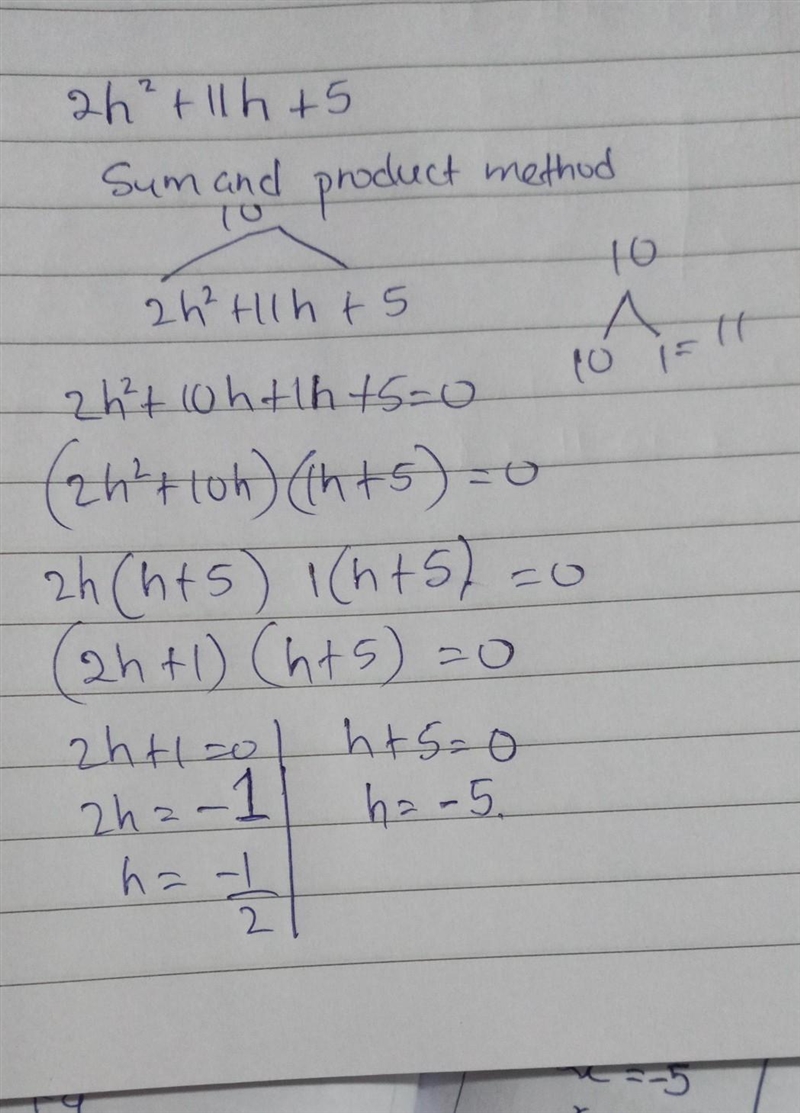 2h² + 11h + 5
Sum and product method
10
2h² + 11h + 5
10
10 1 = 11
2h² + 10h + 1h + 5 = 0
(2h² + 10h) (1h + 5) = 0
2h (h + 5) 1(h + 5) = 0
(2h + 1) (h + 5) = 0
2h + 1 = 0 h + 5 = 0
2h = -1 h = -5.
h = -1/2
x = -5